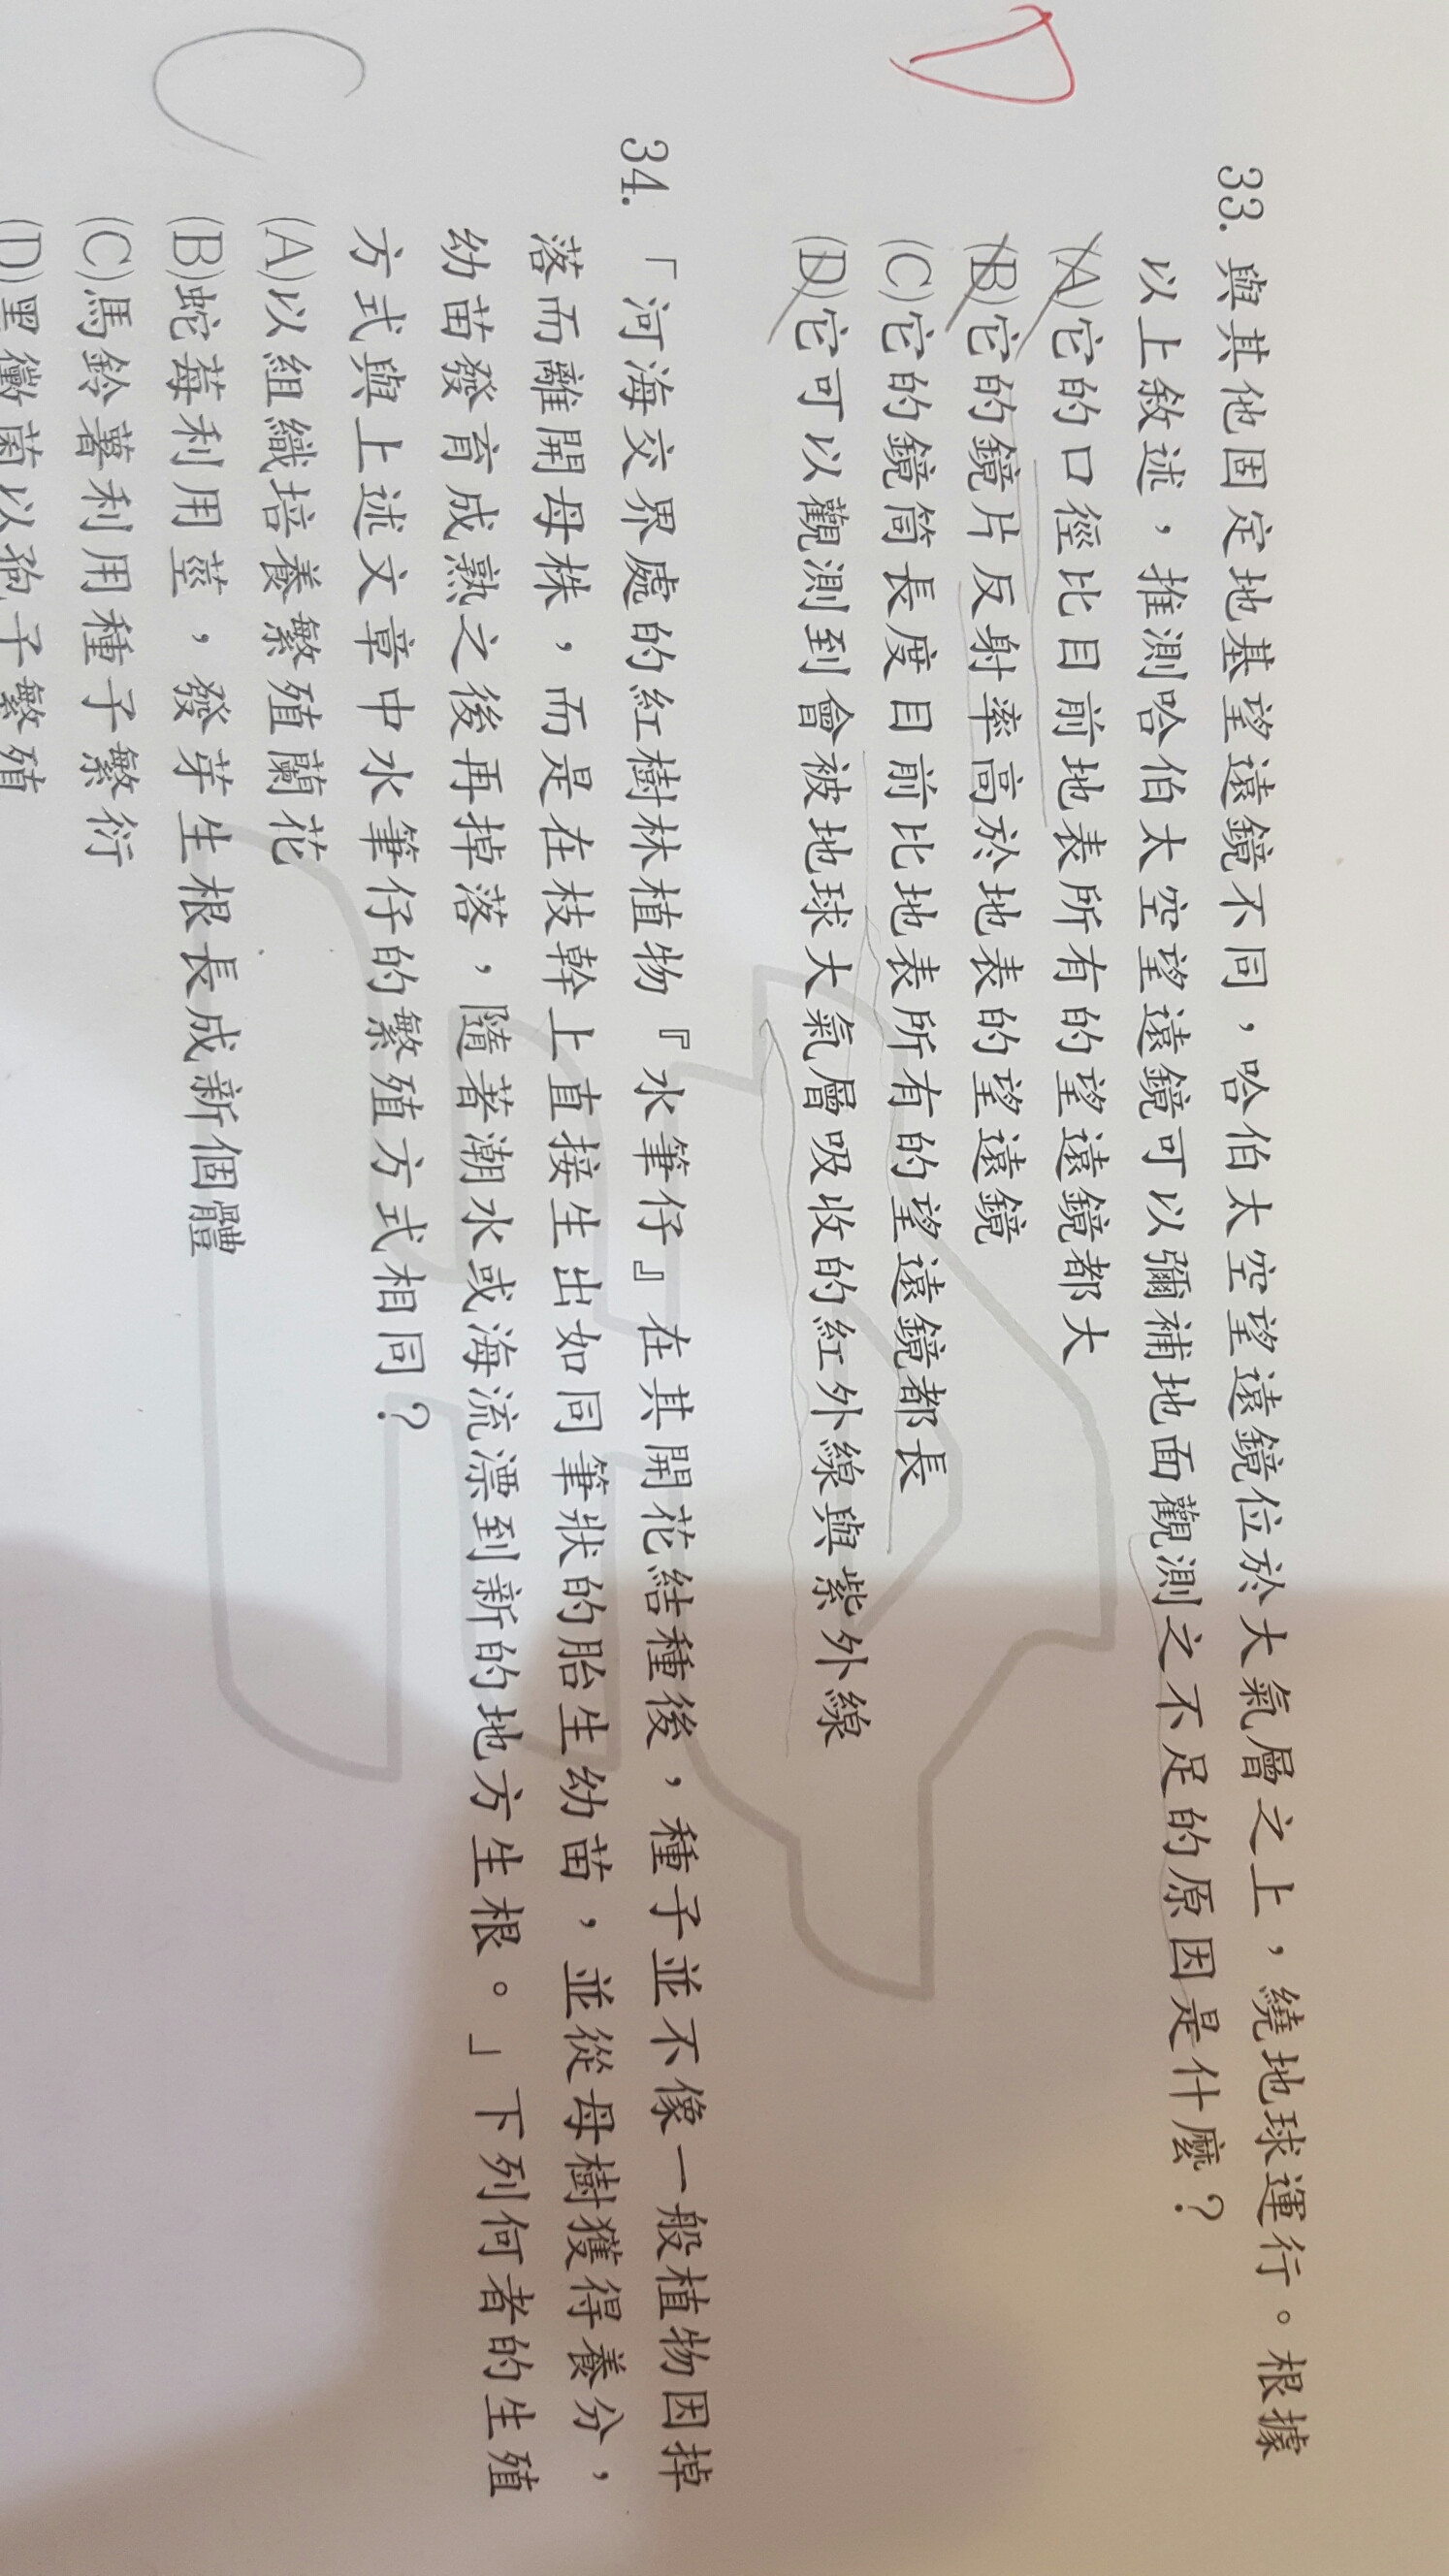 D
33. 與其他固定地基望遠鏡不同，哈伯太空望遠鏡位於大氣層之上，繞地球運行。根據
以上敘述，推測哈伯太空望遠鏡可以彌補地面觀測之不足的原因是什麼？
(A)它的口徑比目前地表所有的望遠鏡都大
(B)它的鏡片反射率高於地表的望遠鏡
(C)它的鏡筒長度目前比地表所有的望遠鏡都長
(D)它可以觀測到會被地球大氣層吸收的紅外線與紫外線
34. 「河海交界處的紅樹林植物『水筆仔』在其開花結種後，種子並不像一般植物因掉
落而離開母株，而是在枝幹上直接生出如同筆狀的胎生幼苗，並從母樹獲得養分，
幼苗發育成熟之後再掉落，隨著潮水或海流漂到新的地方生根。」下列何者的生殖
方式與上述文章中水筆仔的繁殖方式相同？
C
(A)以組織培養繁殖蘭花
(B)蛇莓利用莖，發芽生根長成新個體
(C)馬鈴薯利用種子繁衍
(D)黑黴菌以孢子繁殖